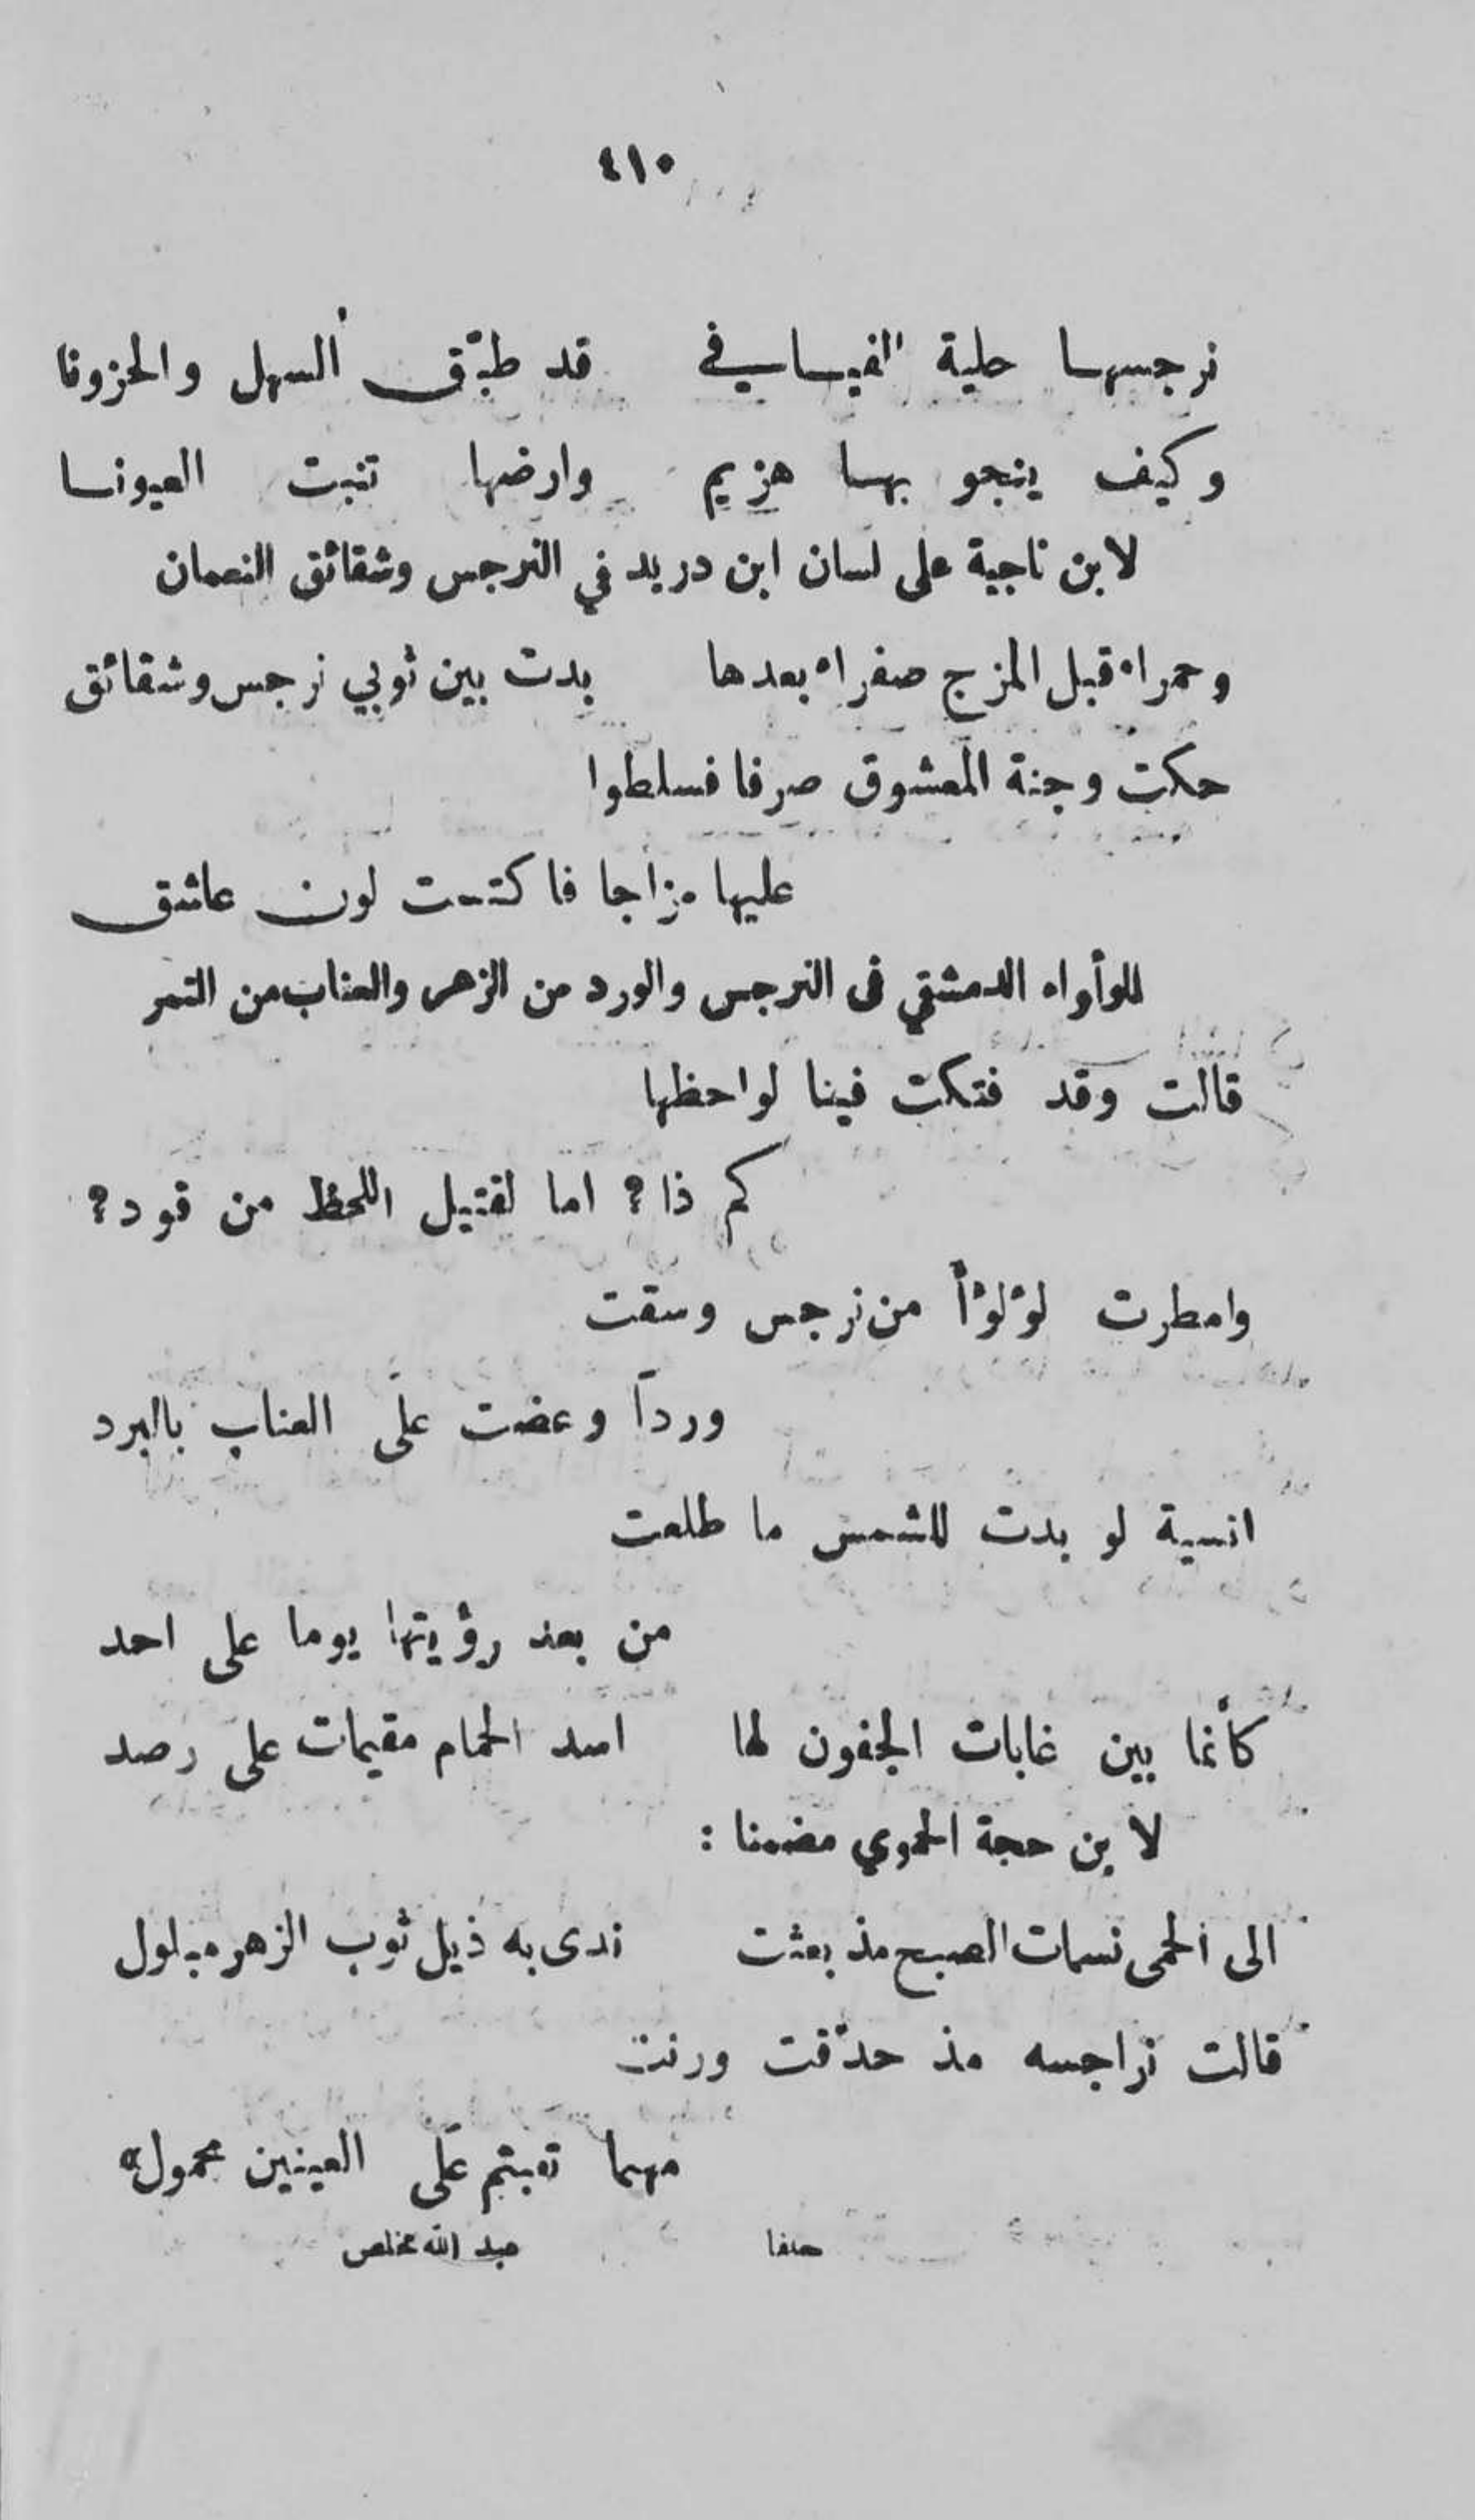 ٤١٠
نرجسها حلية الفيافي قد طبّق السهل والحزونا
وكيف ينجو بها هزيم وارضها تنبت العيونا
لابن ناجية على لسان ابن دريد في النرجس وشقائق النعمان
وحمراء قبل المزج صفراء بعدها بدت بين ثوبي نرجس وشقائق
حكت وجنة المعشوق صرفا فسلطوا
عليها مزاجا فاكتست لون عاشق
للوأواء الدمشقي في النرجس والورد من الزهر والعناب من الثمر
قالت وقد فتكت فينا لواحظها
كم ذا؟ اما لقتيل اللحظ من قود؟
وامطرت لؤلؤاً من نرجس وسقت
ورداً وعضت على العناب بالبرد
انسية لو بدت للشمس ما طلعت
من بعد رؤيتها يوما على احد
كأنما بين غابات الجفون لها اسد الحمام مقيمات على رصد
لابن حجة الحموي مضمنا :
الى الحمى نسمات الصبح مذ بعثت ندى به ذيل ثوب الزهر مبلول
قالت نراجسه مذ حدّقت ورنت
مهما تعبتم على العينين محمول»
حيفا عبد الله مخلص